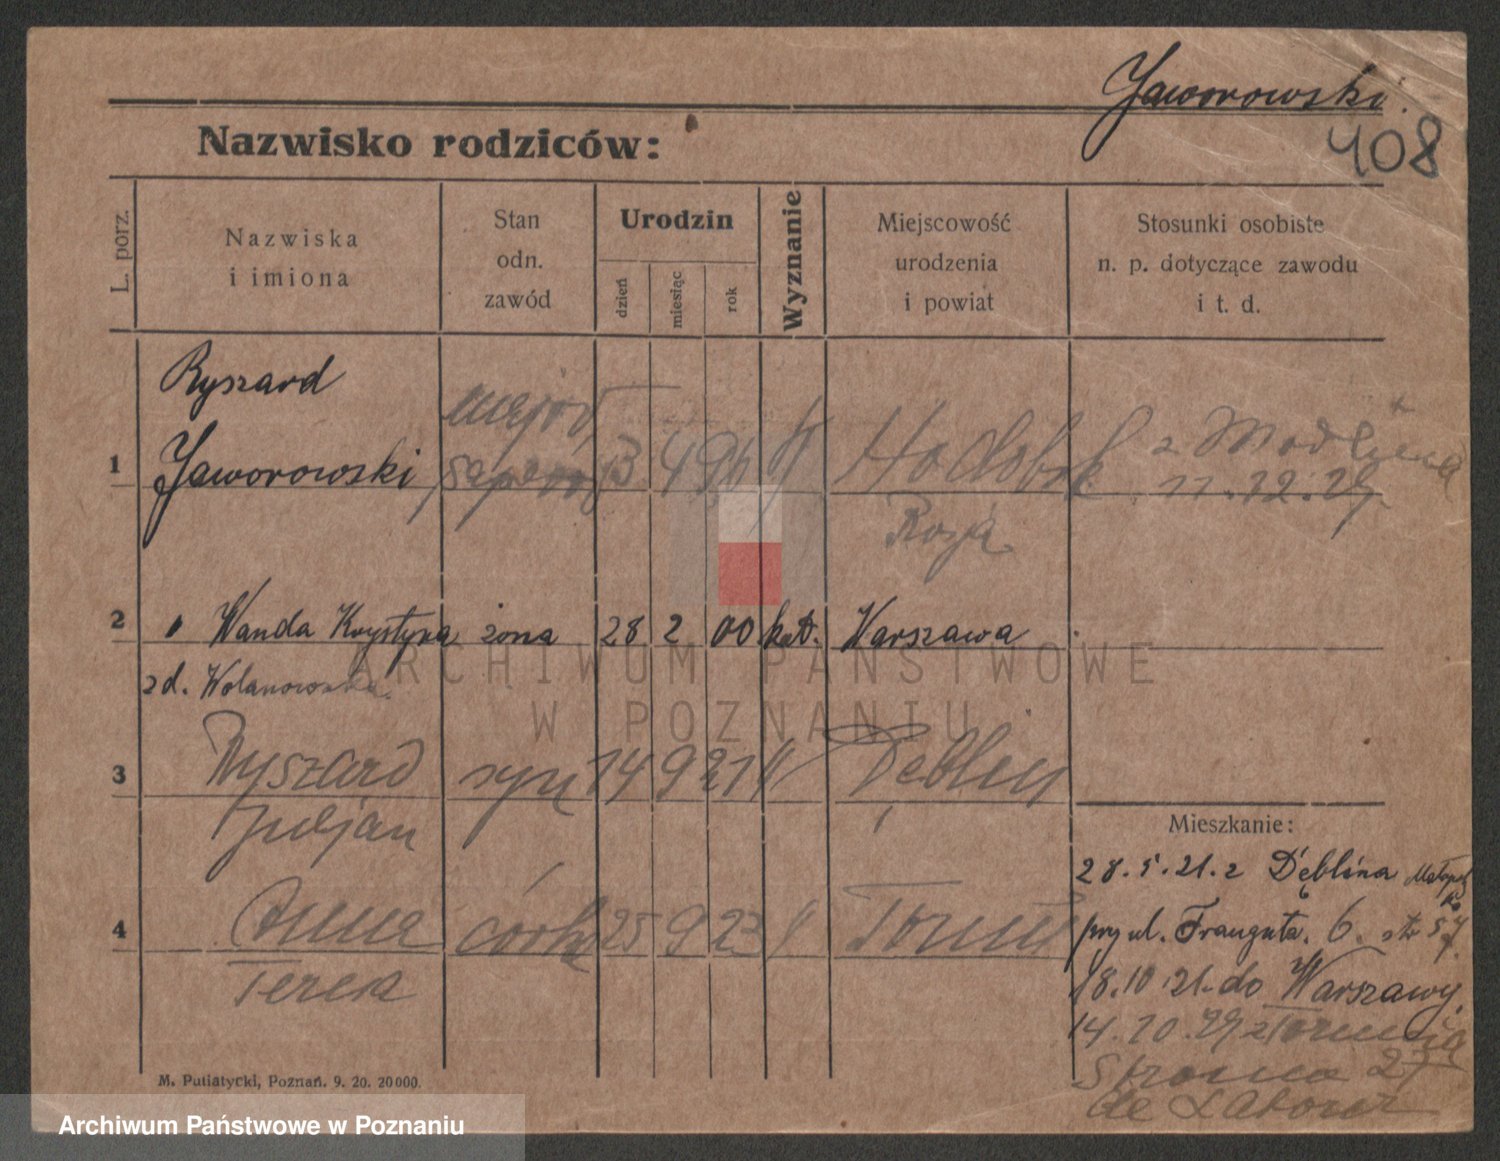 Jaworowski.
408
Nazwisko rodziców:
L. porz.
Nazwiska
i imiona
Stan
odn.
zawód
Urodzin
dzień
miesiąc
rok
Wyznanie
Miejscowość
urodzenia
i powiat
Stosunki osobiste
n. p. dotyczące zawodu
i t. d.
1
Ryszard
Jaworowski
major
13 4
z Modlina
11.12.29.
Rosja
2
Wanda Krystyna żona 28 2 00 kat. Warszawa
zd. Wolanowska
3
Ryszard syn 14 9 21 " Dęblin
Juljan
4
Anna córka 25 9 23 " Toruń
Teresa
Mieszkanie:
28.5.21. z Dęblina
przy ul. Traugutta. 6.
18.10.21. do Warszawy.
14.10.29 z Torunia
27
M. Putiatycki, Poznań. 9. 20. 20000.
ARCHIWUM PAŃSTWOWE
W POZNANIU
Archiwum Państwowe w Poznaniu